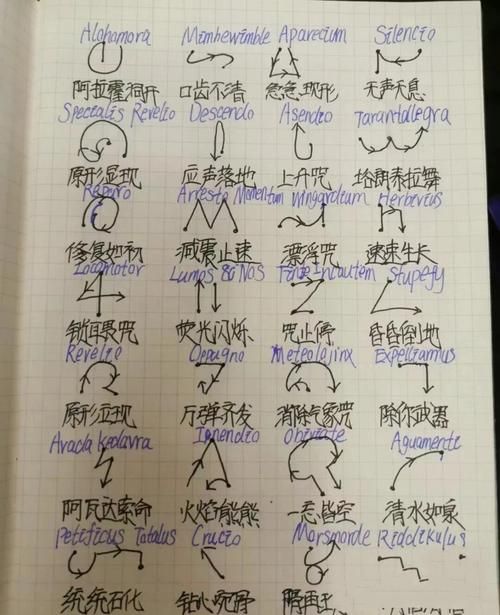 Alohamora Mimbewimble Aparecium Silencio
阿拉霍洞开 口齿不清 急急现形 无声无息
Specialis Revelio Descendo Asendio Tarantallegra
原形显现 应声落地 上升咒 塔朗泰拉舞
Reparo Arresto Momentum Wingardium Herbivius
修复如初 减震止速 漂浮咒 速速生长
Locomotor Lumos & NOS Finite Incautem Stupefy
锁 咒 荧光闪烁 咒止停 昏昏倒地
Revelio Oppugno Meteolojinx Expelliamus
原形立现 万弹齐发 消除气象咒 除你武器
Avada Kedavra Incendio Obiviate Aguamenti
阿瓦达索命 火焰熊熊 一忘皆空 清水如泉
Petificus Totalus Crucio Morsmorde Riddikulus
统统石化 钻心剜骨